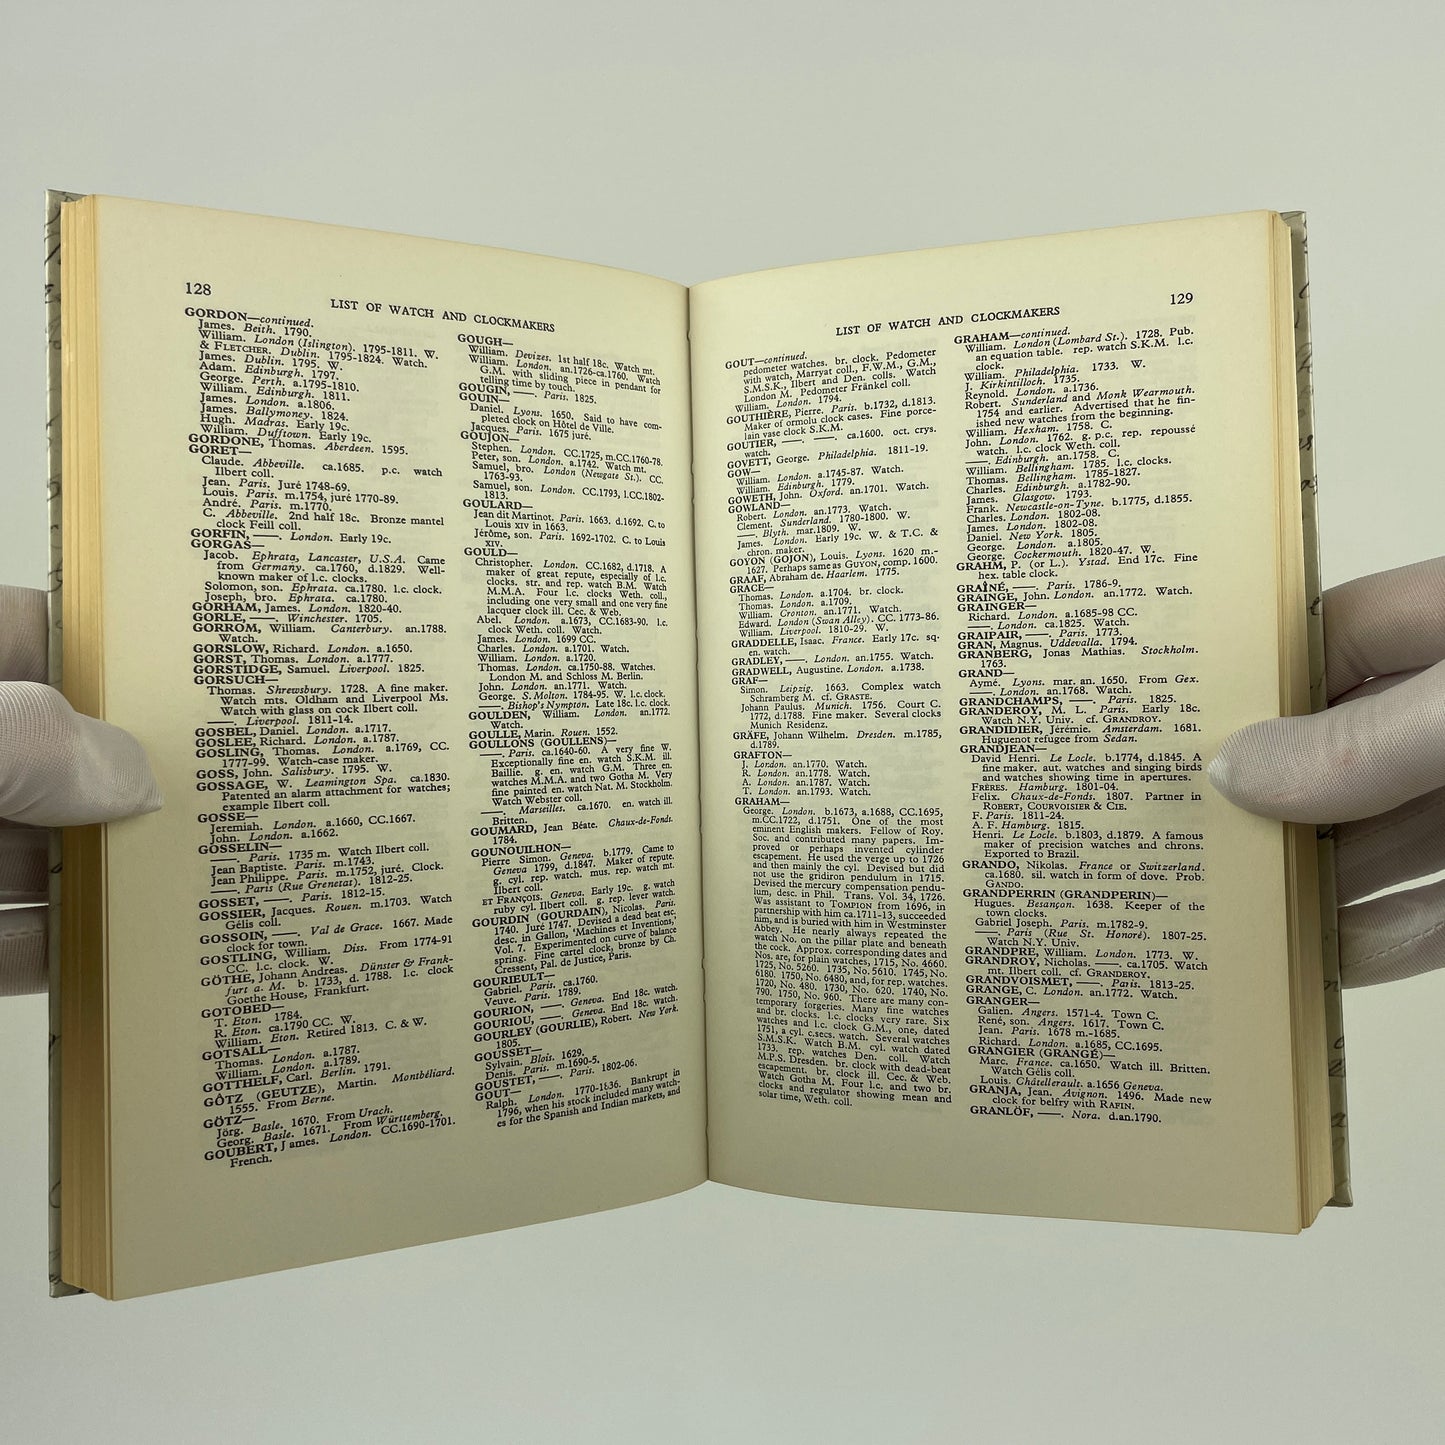 128
LIST OF WATCH AND CLOCKMAKERS
GORDON—continued.
James. Beith. 1790.
William. London (Islington). 1795-1811. W.
& FLETCHER. Dublin. 1795-1824. Watch.
James. Dublin. 1795. W.
Adam. Edinburgh. 1797.
George. Perth. a.1795-1810.
William. Edinburgh. 1811.
James. London. a.1806.
James. Ballymoney. 1824.
Hugh. Madras. Early 19c.
William. Dufftown. Early 19c.
GORDONE, Thomas. Aberdeen. 1595.
GORET—
Claude. Abbeville. ca.1685. p.c. watch
Ilbert coll.
Jean. Paris. Juré 1748-69.
Louis. Paris. m.1754, juré 1770-89.
André. Paris. m.1770.
C. Abbeville. 2nd half 18c. Bronze mantel
clock Feill coll.
GORFIN, ——. London. Early 19c.
GORGAS—
Jacob. Ephrata, Lancaster, U.S.A. Came
from Germany. ca.1760, d.1829. Well-
known maker of l.c. clocks.
Solomon, son. Ephrata. ca.1780. l.c. clock.
Joseph, bro. Ephrata. ca.1780.
GORHAM, James. London. 1820-40.
GORLE, ——. Winchester. 1705.
GORROM, William. Canterbury. an.1788.
Watch.
GORSLOW, Richard. London. a.1650.
GORST, Thomas. London. a.1777.
GORSTIDGE, Samuel. Liverpool. 1825.
GORSUCH—
Thomas. Shrewsbury. 1728. A fine maker.
Watch mts. Oldham and Liverpool Ms.
Watch with glass on cock Ilbert coll.
——. Liverpool. 1811-14.
GOSBEL, Daniel. London. a.1717.
GOSLEE, Richard. London. a.1787.
GOSLING, Thomas. London. a.1769, CC.
1777-99. Watch-case maker.
GOSS, John. Salisbury. 1795. W.
GOSSAGE, W. Leamington Spa. ca.1830.
Patented an alarm attachment for watches;
example Ilbert coll.
GOSSE—
Jeremiah. London. a.1660, CC.1667.
John. London. a.1662.
GOSSELIN—
——. Paris. 1735 m. Watch Ilbert coll.
Jean Baptiste. Paris. m.1743.
Jean Philippe. Paris. m.1752, juré. Clock.
——. Paris (Rue Grenetat). 1812-25.
GOSSET, ——. Paris. 1812-15.
GOSSIER, Jacques. Rouen. m.1703. Watch
Gélis coll.
GOSSOIN, ——. Val de Grace. 1667. Made
clock for town.
GOSTLING, William. Diss. From 1774-91
CC. l.c. clock. W.
GÖTHE, Johann Andreas. Dünster & Frank-
furt a. M. b. 1733, d. 1788. l.c. clock
Goethe House, Frankfurt.
GOTOBED—
T. Eton. 1784.
R. Eton. ca.1790 CC. W.
William. Eton. Retired 1813. C. & W.
GOTSALL—
Thomas. London. a.1787.
William. London. a.1789.
GOTTHELF, Carl. Berlin. 1791.
GÔTZ (GEUTZE), Martin. Montbéliard.
1555. From Berne.
GÖTZ—
Jörg. Basle. 1670. From Urach.
Georg. Basle. 1671. From Württemberg.
GOUBERT, J ames. London. CC.1690-1701.
French.
GOUGH—
William. Devizes. 1st half 18c. Watch mt.
William. London. an.1726-ca.1760. Watch
G.M. with sliding piece in pendant for
telling time by touch.
GOUGIN, ——. Paris. 1825.
GOUIN—
Daniel. Lyons. 1650. Said to have com-
pleted clock on Hôtel de Ville.
Jacques. Paris. 1675 juré.
GOUJON—
Stephen. London. CC.1725, m.CC.1760-78.
Peter, son. London. a.1742. Watch mt.
Samuel, bro. London (Newgate St.). CC.
1763-93.
Samuel, son. London. CC.1793, l.CC.1802-
1813.
GOULARD—
Jean dit Martinot. Paris. 1663. d.1692. C. to
Louis XIV in 1663.
Jérôme, son. Paris. 1692-1702. C. to Louis
XIV.
GOULD—
Christopher. London. CC.1682, d.1718. A
maker of great repute, especially of l.c.
clocks. str. and rep. watch B.M. Watch
M.M.A. Four l.c. clocks Weth. coll.,
including one very small and one very fine
lacquer clock ill. Cec. & Web.
Abel. London. a.1673, CC.1683-90. l.c.
clock Weth. coll. Watch.
James. London. 1699 CC.
Charles. London. a.1701. Watch.
William. London. a.1720.
Thomas. London. ca.1750-88. Watches.
London M. and Schloss M. Berlin.
John. London. an.1771. Watch.
George. S. Molton. 1784-95. W. l.c. clock.
——. Bishop's Nympton. Late 18c. l.c. clock.
GOULDEN, William. London. an.1772.
Watch.
GOULLE, Marin. Rouen. 1552.
GOULLONS (GOULLENS)—
——. Paris. ca.1640-60. A very fine W.
Exceptionally fine en. watch S.K.M. ill.
Baillie. g. en. watch G.M. Three en.
watches M.M.A. and two Gotha M. Very
fine painted en. watch Nat. M. Stockholm.
Watch Webster coll.
——. Marseilles. ca.1670. en. watch ill.
Britten.
GOUMARD, Jean Béate. Chaux-de-Fonds.
1784.
GOUNOUILHON—
Pierre Simon. Geneva. b.1779. Came to
Geneva 1799, d.1847. Maker of repute.
g. cyl. rep. watch. mus. rep. watch mt.
Ilbert coll.
ET FRANÇOIS. Geneva. Early 19c. g. watch
ruby cyl. Ilbert coll. g. rep. lever watch.
GOURDIN (GOURDAIN), Nicolas. Paris.
1740. Juré 1747. Devised a dead beat esc.
desc. in Gallon, 'Machines et Inventions,'
Vol. 7. Experimented on curve of balance
spring. Fine cartel clock, bronze by Ch.
Cressent, Pal. de Justice, Paris.
GOURIEULT—
Gabriel. Paris. ca.1760.
Veuve. Paris. 1789.
GOURION, ——. Geneva. End 18c. watch.
GOURIOU, ——. Geneva. End 18c. watch.
GOURLEY (GOURLIE), Robert. New York.
1805.
GOUSSET—
Sylvain. Blois. 1629.
Denis. Paris. m.1690-5.
GOUSTET, ——. Paris. 1802-06.
GOUT—
Ralph. London. 1770-1836. Bankrupt in
1796, when his stock included many watch-
es for the Spanish and Indian markets, and
129
LIST OF WATCH AND CLOCKMAKERS
GOUT—continued.
pedometer watches. br. clock. Pedometer
with watch, Marryat coll., F.W.M., G.M.,
S.M.S.K., Ilbert and Den. colls. Watch
London M. Pedometer Fränkel coll.
William. London. 1794.
GOUTHIÈRE, Pierre. Paris. b.1732, d.1813.
Maker of ormolu clock cases. Fine porce-
lain vase clock S.K.M.
GOUTIER, ——. ——. ca.1600. oct. crys.
watch.
GOVETT, George. Philadelphia. 1811-19.
GOW—
William. London. a.1745-87. Watch.
William. Edinburgh. 1779.
GOWETH, John. Oxford. an.1701. Watch.
GOWLAND—
Robert. London. an.1773. Watch.
Clement. Sunderland. 1780-1800. W.
——. Blyth. mar.1809. W.
James. London. Early 19c. W. & T.C. &
chron. maker.
GOYON (GOJON), Louis. Lyons. 1620 m.-
1627. Perhaps same as GUYON, comp. 1600.
GRAAF, Abraham de. Haarlem. 1775.
GRACE—
Thomas. London. a.1704. br. clock.
Thomas. London. a.1709.
William. Cronton. an.1771. Watch.
Edward. London (Swan Alley). CC. 1773-86.
William. Liverpool. 1810-29. W.
GRADDELLE, Isaac. France. Early 17c. sq.
en. watch.
GRADLEY, ——. London. an.1755. Watch.
GRADWELL, Augustine. London. a.1738.
GRAF—
Simon. Leipzig. 1663. Complex watch
Schramberg M. cf. GRASTE.
Johann Paulus. Munich. 1756. Court C.
1772, d.1788. Fine maker. Several clocks
Munich Residenz.
GRÄFE, Johann Wilhelm. Dresden. m.1785,
d.1789.
GRAFTON—
J. London. an.1770. Watch.
R. London. an.1778. Watch.
A. London. an.1787. Watch.
T. London. an.1793. Watch.
GRAHAM—
George. London. b.1673, a.1688, CC.1695,
m.CC.1722, d.1751. One of the most
eminent English makers. Fellow of Roy.
Soc. and contributed many papers. Im-
proved or perhaps invented cylinder
escapement. He used the verge up to 1726
and then mainly the cyl. Devised but did
not use the gridiron pendulum in 1715.
Devised the mercury compensation pendu-
lum, desc. in Phil. Trans. Vol. 34, 1726.
Was assistant to TOMPION from 1696, in
partnership with him ca.1711-13, succeeded
him, and is buried with him in Westminster
Abbey. He nearly always repeated the
watch No. on the pillar plate and beneath
the cock. Approx. corresponding dates and
Nos. are, for plain watches, 1715, No. 4660.
1725, No. 5260. 1735, No. 5610. 1745, No.
6180. 1750, No. 6480, and, for rep. watches.
1720, No. 480. 1730, No. 620. 1740, No.
790. 1750, No. 960. There are many con-
temporary forgeries. Many fine watches
and br. clocks. l.c. clocks very rare. Six
watches and l.c. clock G.M., one, dated
1751, a cyl. c.secs. watch. Several watches
S.M.S.K. Watch B.M. cyl. watch dated
1733, rep. watches Den. coll. Watch
M.P.S. Dresden. br. clock with dead-beat
escapement. br. clock ill. Cec. & Web.
Watch Gotha M. Four l.c. and two br.
clocks and regulator showing mean and
solar time, Weth. coll.
GRAHAM—continued.
William. London (Lombard St.). 1728. Pub.
an equation table. rep. watch S.K.M. l.c.
clock.
William. Philadelphia. 1733. W.
J. Kirkintilloch. 1735.
Reynold. London. a.1736.
Robert. Sunderland and Monk Wearmouth.
1754 and earlier. Advertised that he fin-
ished new watches from the beginning.
William. Hexham. 1758. C.
John. London. 1762. g. p.c. rep. repoussé
watch. l.c. clock Weth. coll.
——. Edinburgh. an.1758. C.
William. Bellingham. 1785. l.c. clocks.
Thomas. Bellingham. 1785-1827.
Charles. Edinburgh. a.1782-90.
James. Glasgow. 1793.
Frank. Newcastle-on-Tyne. b.1775, d.1855.
Charles. London. 1802-08.
James. London. 1802-08.
Daniel. New York. 1805.
George. London. a.1805.
George. Cockermouth. 1820-47. W.
GRAHM, P. (or L.). Ystad. End 17c. Fine
hex. table clock.
GRAÎNÉ, ——. Paris. 1786-9.
GRAINGE, John. London. an.1772. Watch.
GRAINGER—
Richard. London. a.1685-98 CC.
——. London. ca.1825. Watch.
GRAIPAIR, ——. Paris. 1773.
GRAN, Magnus. Uddevalla. 1794.
GRANBERG, Jonas Mathias. Stockholm.
1763.
GRAND—
Aymé. Lyons. mar. an. 1650. From Gex.
——. London. an.1768. Watch.
GRANDCHAMPS, ——. Paris. 1825.
GRANDEROY, M. L. Paris. Early 18c.
Watch N.Y. Univ. cf. GRANDROY.
GRANDIDIER, Jérémie. Amsterdam. 1681.
Huguenot refugee from Sedan.
GRANDJEAN—
David Henri. Le Locle. b.1774, d.1845. A
fine maker. aut. watches and singing birds
and watches showing time in apertures.
FRÈRES. Hamburg. 1801-04.
Felix. Chaux-de-Fonds. 1807. Partner in
ROBERT, COURVOISIER & CIE.
F. Paris. 1811-24.
A. F. Hamburg. 1815.
Henri. Le Locle. b.1803, d.1879. A famous
maker of precision watches and chrons.
Exported to Brazil.
GRANDO, Nikolas. France or Switzerland.
ca.1680. sil. watch in form of dove. Prob.
GANDO.
GRANDPERRIN (GRANDPERIN)—
Hugues. Besançon. 1638. Keeper of the
town clocks.
Gabriel Joseph. Paris. m.1782-9.
——. Paris (Rue St. Honoré). 1807-25.
Watch N.Y. Univ.
GRANDPRE, William. London. 1773. W.
GRANDROY, Nicholas. ——. ca.1705. Watch
mt. Ilbert coll. cf. GRANDEROY.
GRANDVOISMET, ——. Paris. 1813-25.
GRANGE, C. London. an.1772. Watch.
GRANGER—
Galien. Angers. 1571-4. Town C.
René, son. Angers. 1617. Town C.
Jean. Paris. 1678 m.-1685.
Richard. London. a.1685, CC.1695.
GRANGIER (GRANGÉ)—
Marc. France. ca.1650. Watch ill. Britten.
Watch Gélis coll.
Louis. Châtellerault. a.1656 Geneva.
GRANJA, Jean. Avignon. 1496. Made new
clock for belfry with RAFIN.
GRANLÖF, ——. Nora. d.an.1790.